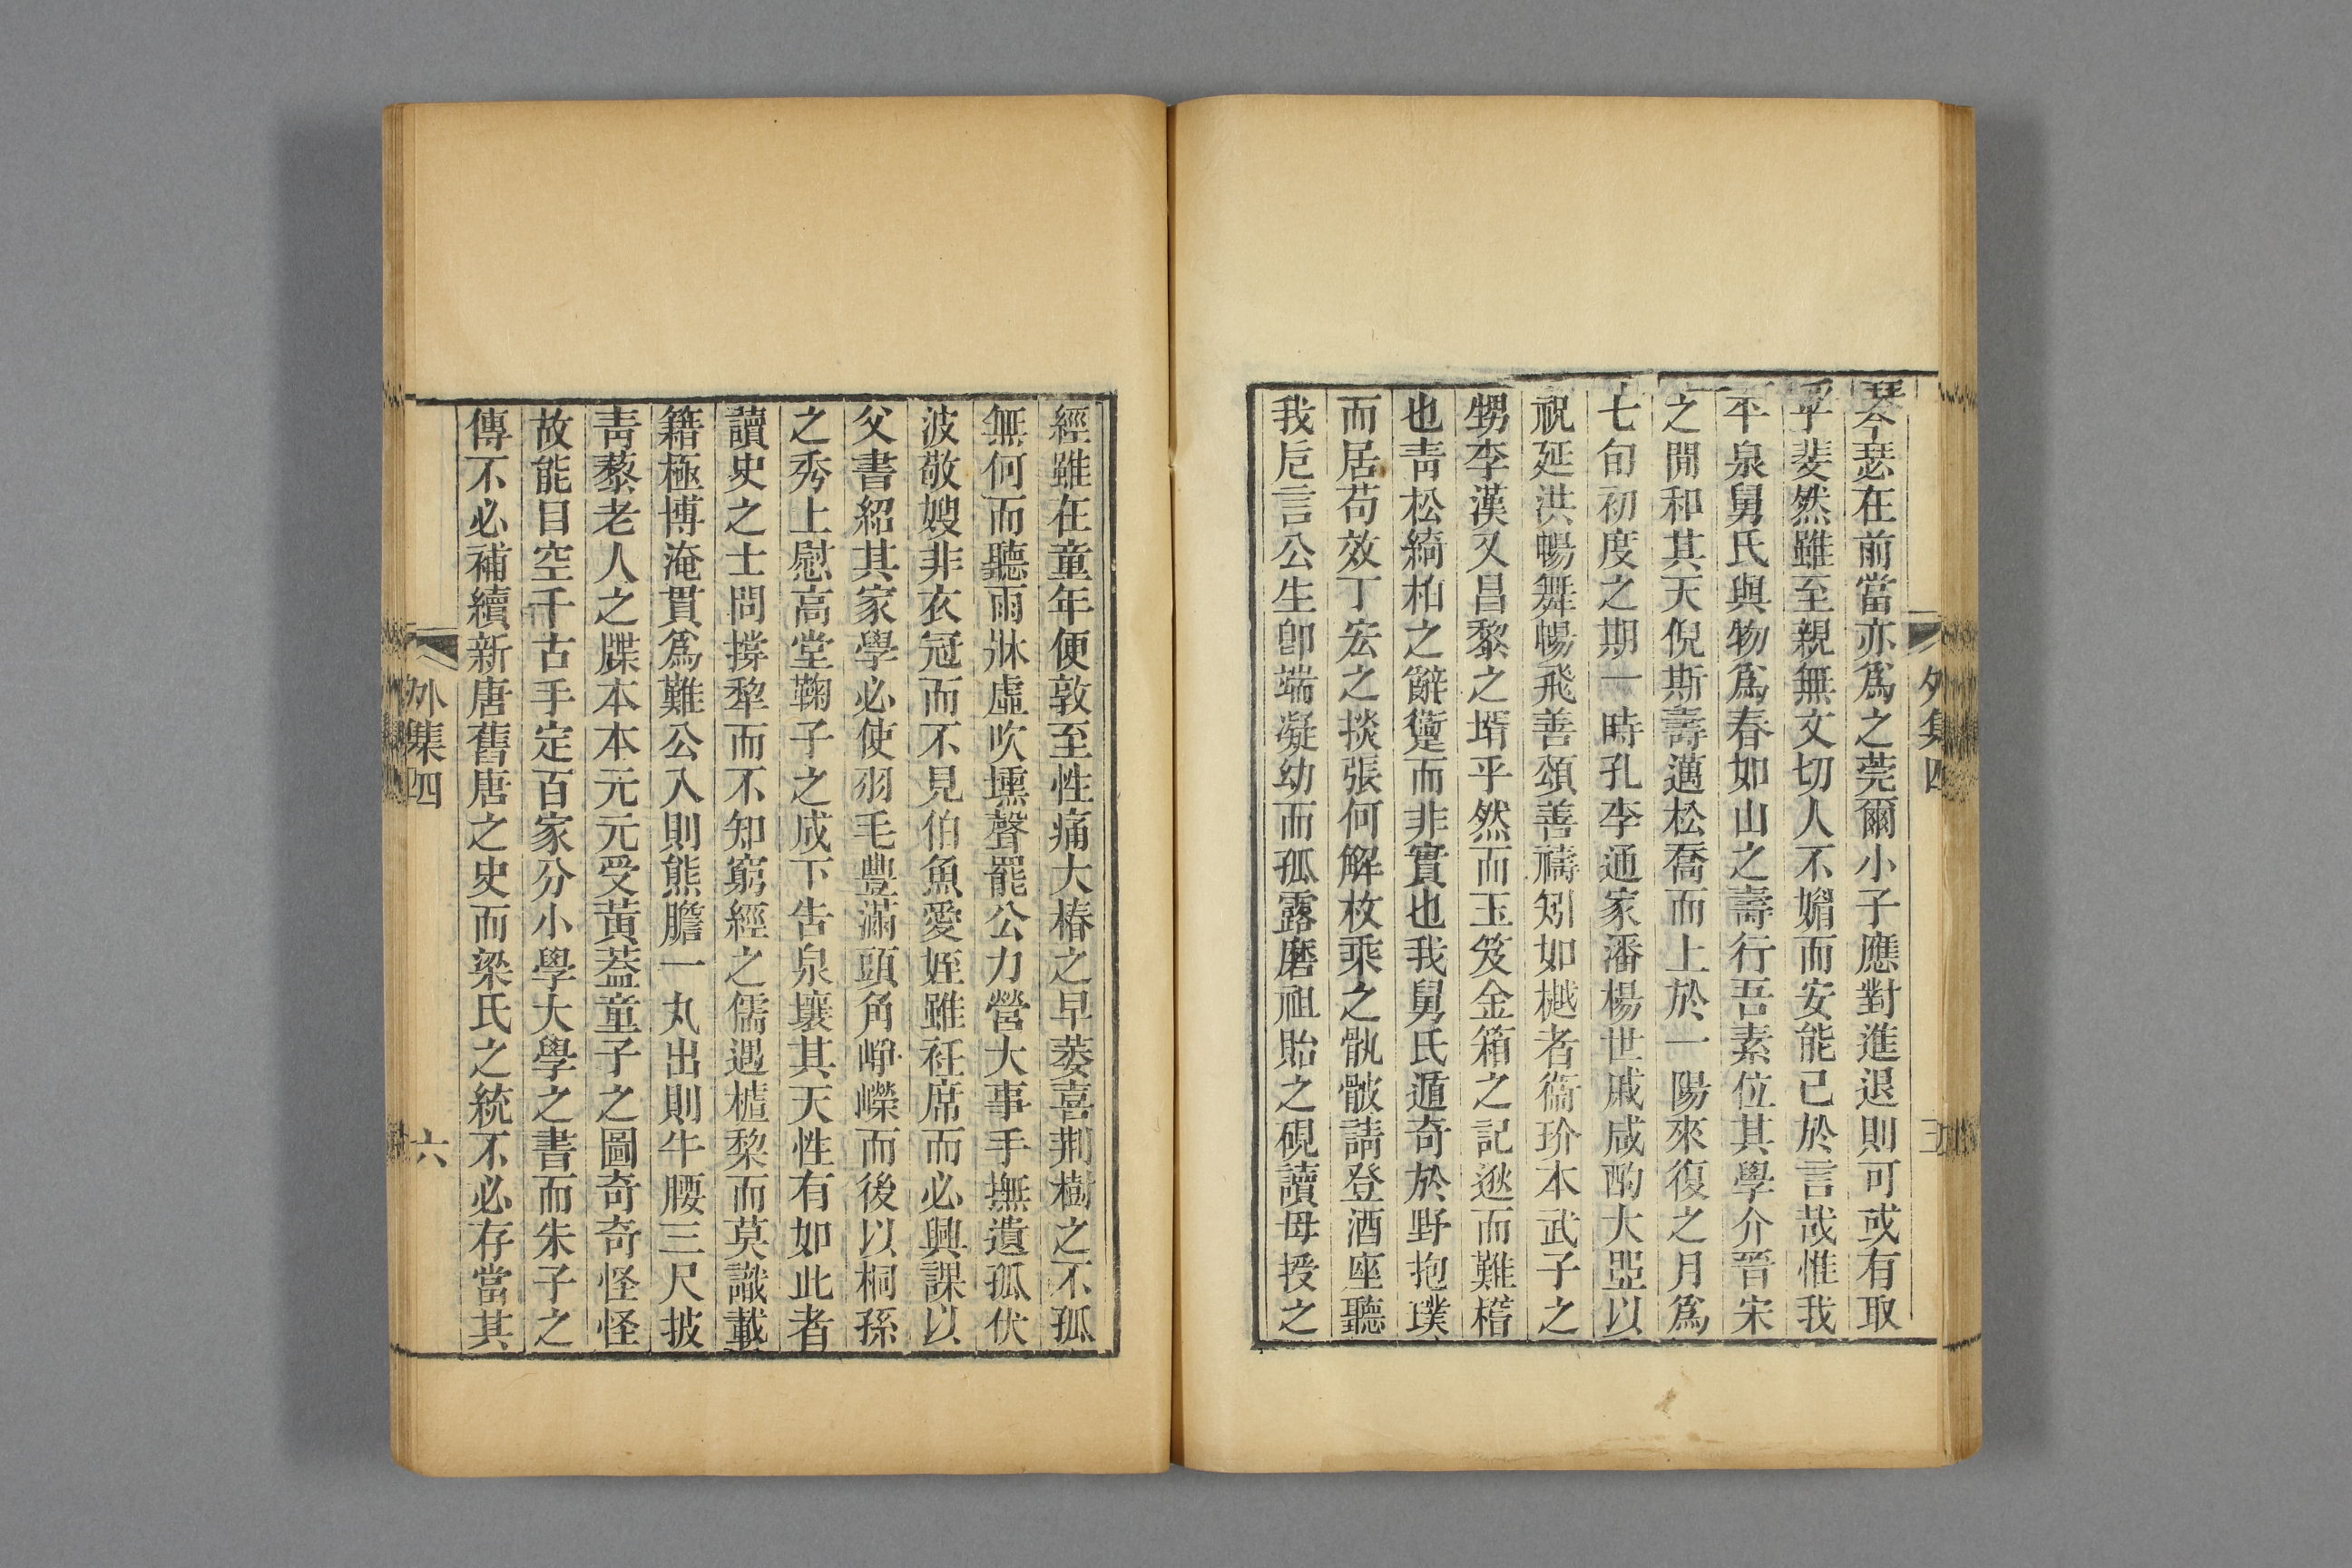 外集四
三
琴瑟在前當亦爲之莞爾小子應對進退則可或有取
乎斐然雖至親無文切人不媚而安能已於言哉惟我
平泉舅氏與物爲春如山之壽行吾素位其學介晉宋
之閒和其天倪斯壽邁松喬而上於一陽來復之月爲
七旬初度之期一時孔李通家潘楊世戚咸酌大斝以
祝延洪暢舞暢飛善頌善禱矧如樾者衞玠本武子之
甥李漢又昌黎之壻乎然而玉笈金箱之記逖而難稽
也靑松綺柏之辭躗而非實也我舅氏遁奇於野抱璞
而居苟效丁宏之掞張何解枚乘之骫骳請登酒座聽
我卮言公生卽端凝幼而孤露磨祖貽之硯讀母授之
經雖在童年便敦至性痛大椿之早萎喜荆樹之不孤
無何而聽雨牀虛吹壎聲罷公力營大事手撫遺孤伏
波敬嫂非衣冠而不見伯魚愛姪雖衽席而必興課以
父書紹其家學必使羽毛豐滿頭角崢嶸而後以桐孫
之秀上慰高堂鞠子之成下告泉壤其天性有如此者
讀史之士問撐犂而不知窮經之儒遇楂棃而莫識載
籍極博淹貫爲難公入則熊膽一丸出則牛腰三尺披
靑藜老人之牒本本元元受黃葢童子之圖奇奇怪怪
故能目空千古手定百家分小學大學之書而朱子之
傳不必補續新唐舊唐之史而梁氏之統不必存當其
外集四
六